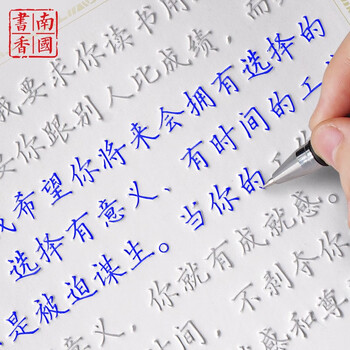 南國
書香
我要求你读书用
要你跟别人比成绩，而
我希望你将来会拥有选择的
选择有意义、有时间的工
是被迫谋生。当你的工
意义，你就有成就感。
时间，不剥夺你
感和尊